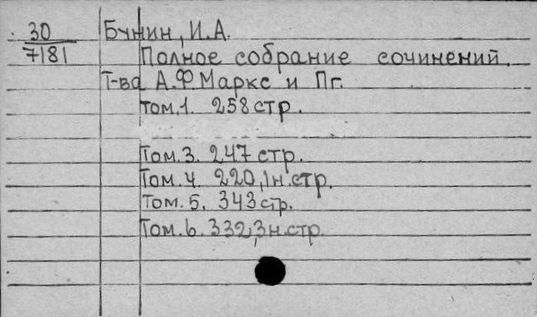 30
7181
Бунин, И.А.
Полное собрание сочинений.
Т-во А.Ф.Маркс и Пг.
Том.1. 258стр.
Том.3. 247стр.
Том.4. 220,1н.стр.
Том.5. 343стр.
Том.6. 332,3н.стр.